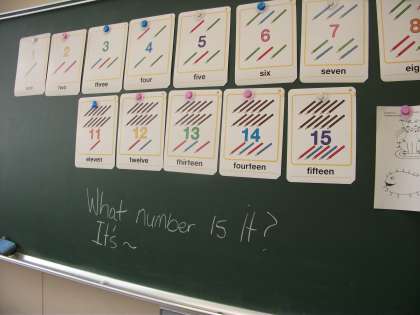 1 2 3 4 5 6 7 8
one two three four five six seven eig
11 12 13 14 15
eleven twelve thirteen fourteen fifteen
What number is it?
It's ~